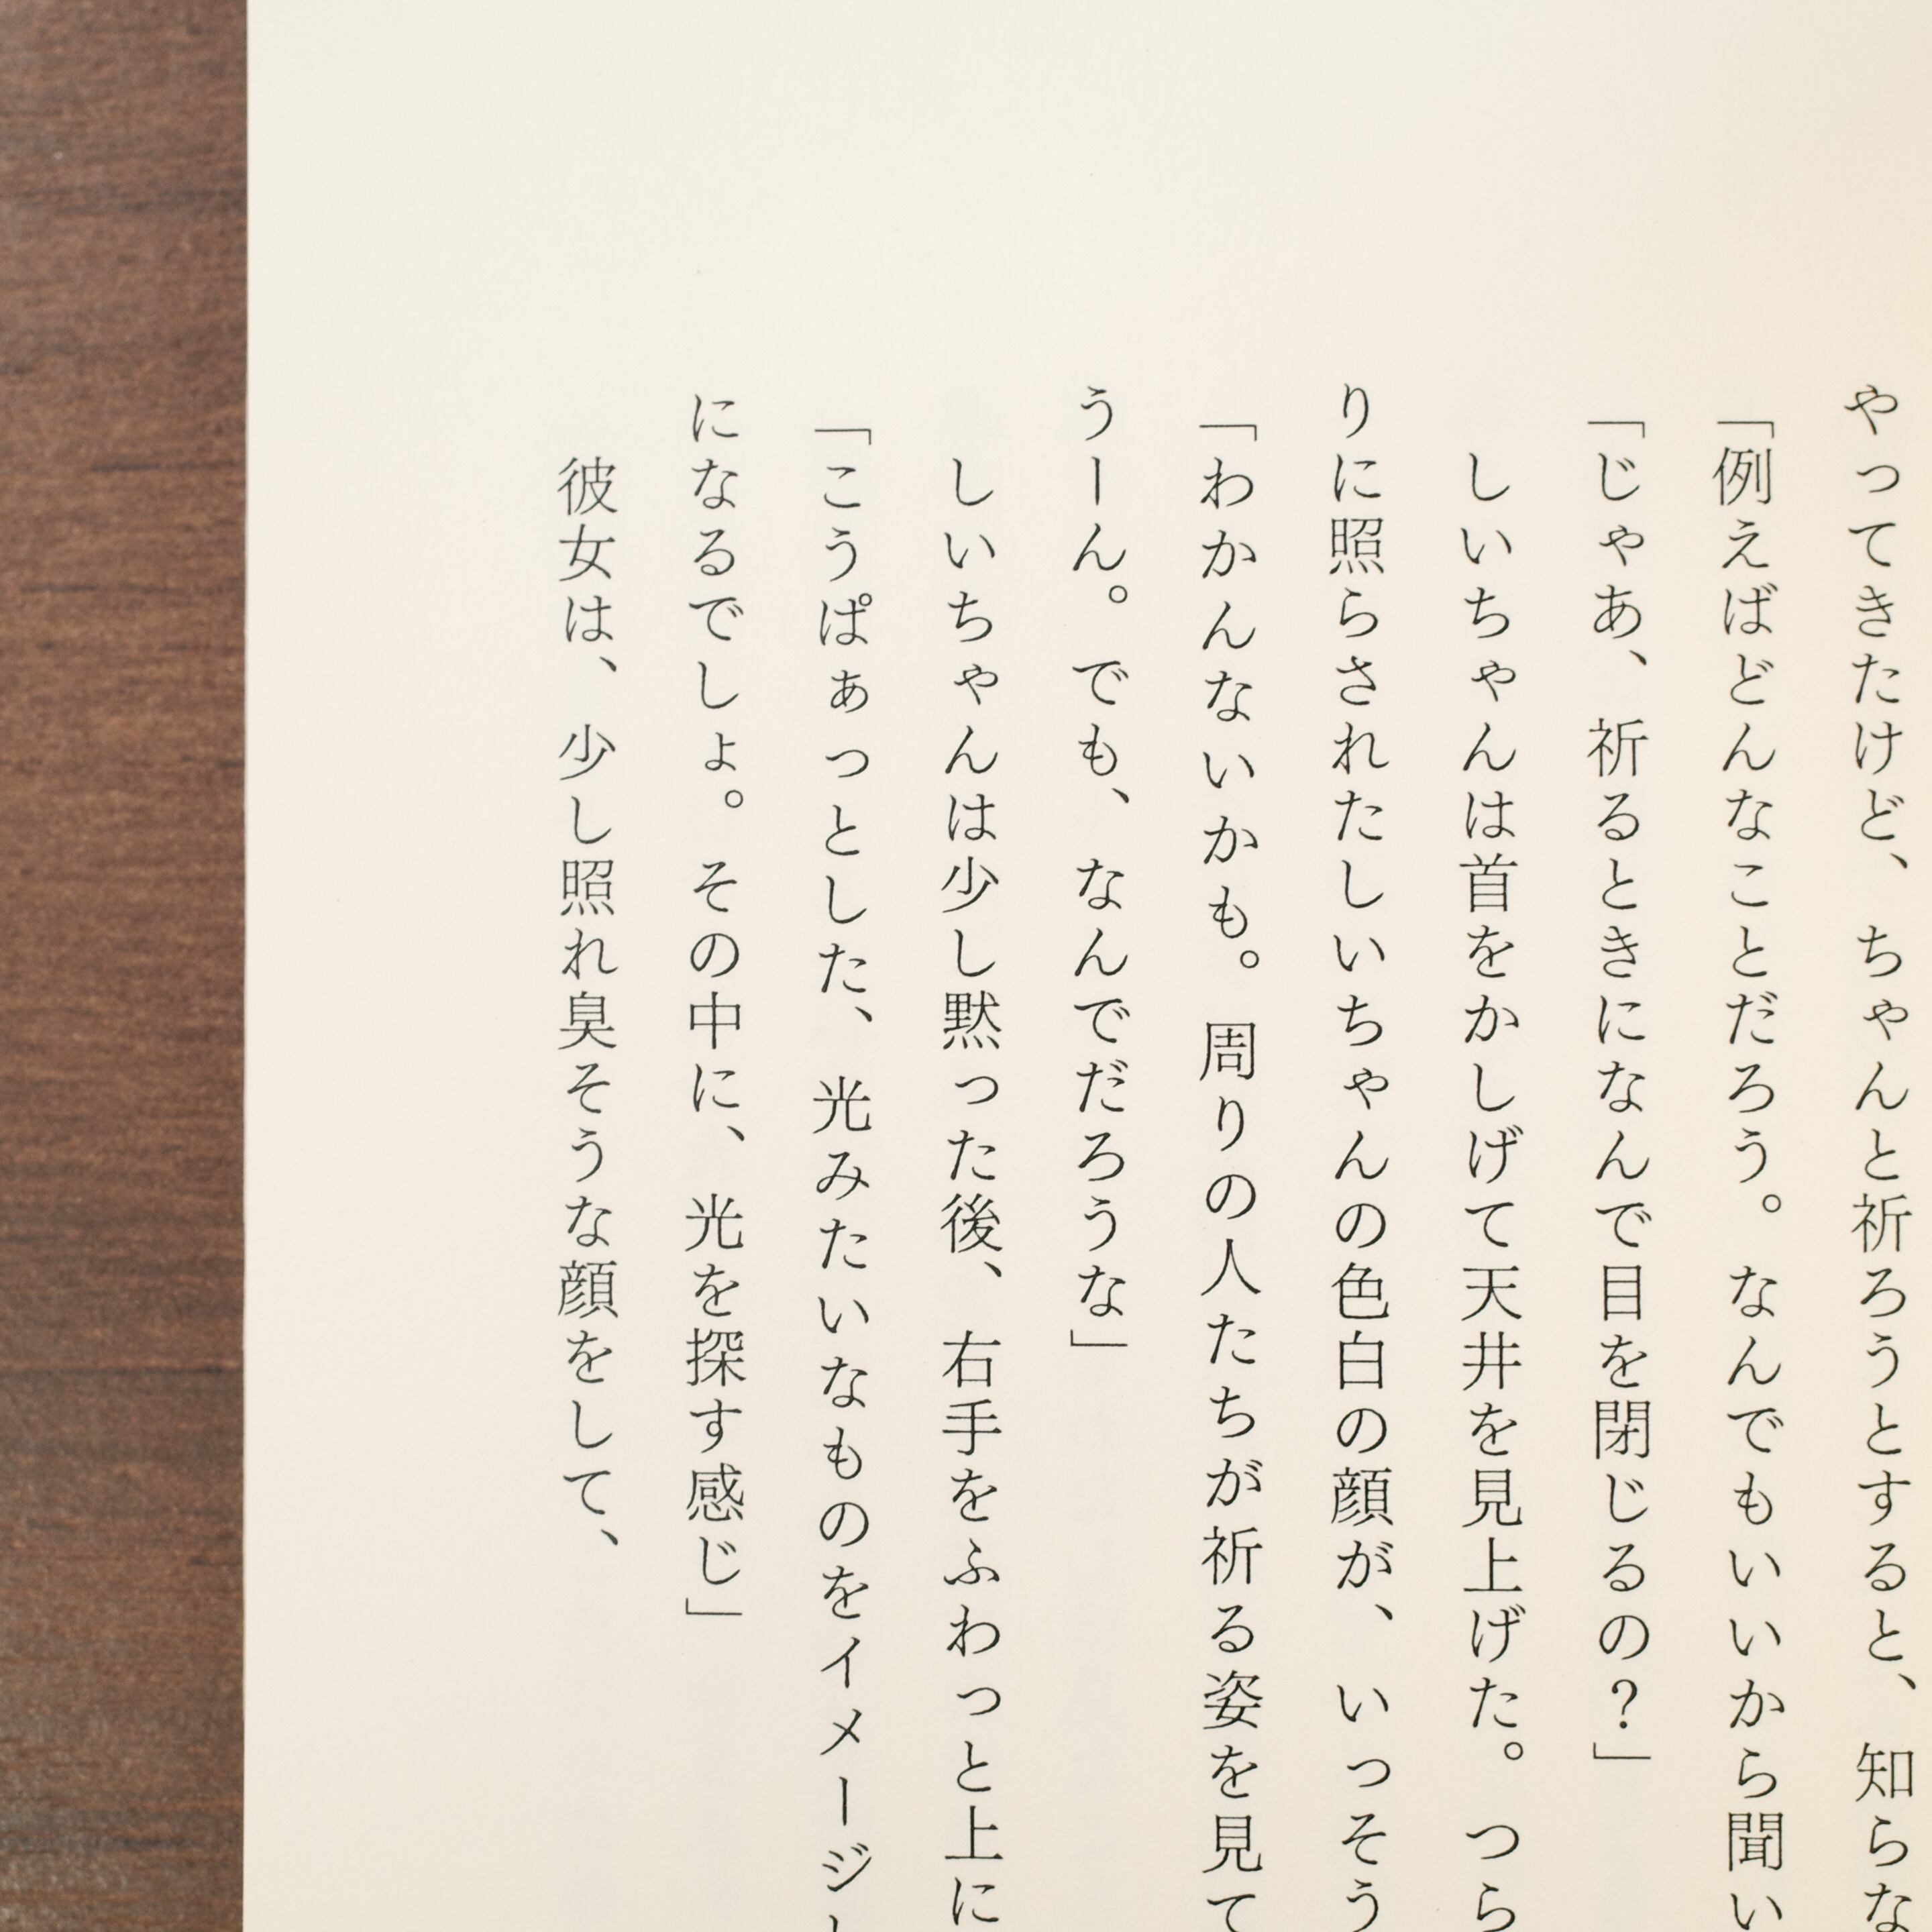 やってきたけど、ちゃんと祈ろうとすると、知らな
「例えばどんなことだろう。なんでもいいから聞い
「じゃあ、祈るときになんで目を閉じるの？」
しいちゃんは首をかしげて天井を見上げた。つら
りに照らされたしいちゃんの色白の顔が、いっそう
「わかんないかも。周りの人たちが祈る姿を見て
うーん。でも、なんでだろうな」
しいちゃんは少し黙った後、右手をふわっと上に
「こうぱぁっとした、光みたいなものをイメージし
になるでしょ。その中に、光を探す感じ」
彼女は、少し照れ臭そうな顔をして、